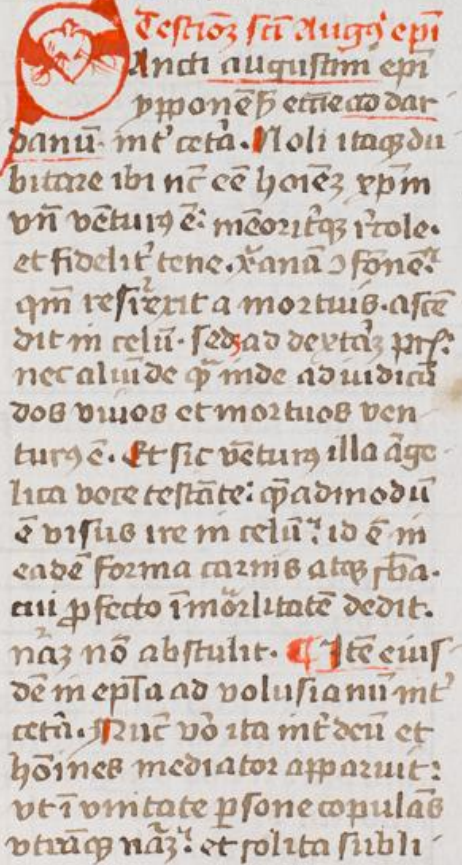 Testioʒ scī Augꝰ epī
SAncti augustini epī
ypponēẜ eccīe ad dar
danū. int᷒ cetᷓa. Noli itaqꝫ du
bitare ibi nc̄ eē hoīeꝫ xp̄m
vn̄ vētuꝝ ē: mēoritᷓqꝫ r̓tole.
et fidelit᷒ tene. xᷓanā ꝯfōnē.
qm̄ resᷓrexit a mortuis. ascē
dit in celū. sedꝫ ad dextᷓaꝫ pr̄s:
nec aliūde qᷓ inde ad iudicā
dos viuos et mortuos ven
turꝰ ē. Et sic vēturꝰ illa āge
lica voce testāte: qᷓadmodū
ē visus ire in celū: id ē in
eadē forma carnis atqꝫ sb̄a.
cui ꝓfecto īmoᷓrlitatē dedit.
nāꝫ nō abstulit. ¶ Itē eius
dē in epl̄a ad volusianū int᷒
cetᷓa. Nūc vo᷒ ita int᷒ deū et
hōīnes mediator apparuit:
vt ī vnitate ꝑsone copulās
vtrāqꝫ nāꝫ: et solita subli